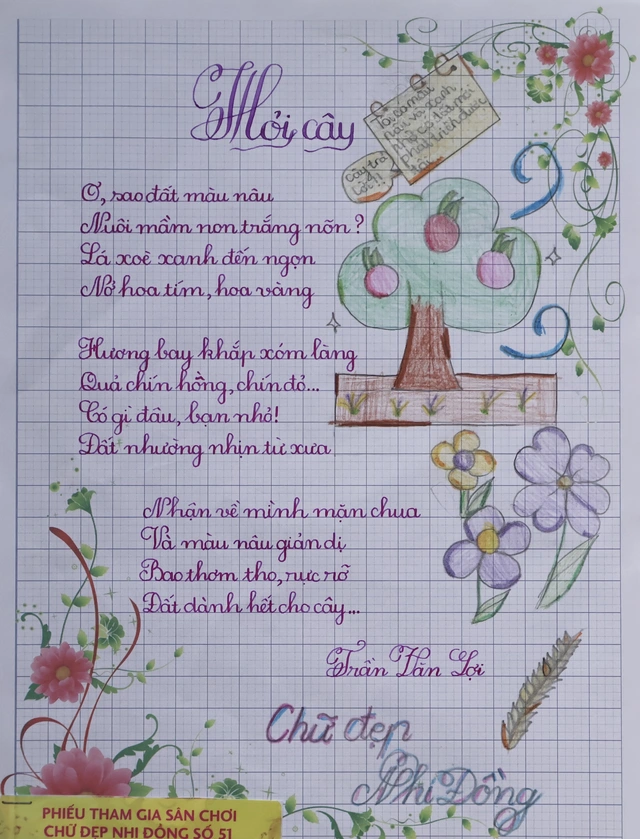 Hỏi cây
Tôi có màu
nâu và xanh
nhờ có đất mới
phát triển được
Cây trả
lời!!
Ơ, sao đất màu nâu
Nuôi mầm non trắng nõn?
Lá xoè xanh đến ngọn
Nở hoa tím, hoa vàng
Hương bay khắp xóm làng
Quả chín hồng, chín đỏ...
Có gì đâu, bạn nhỏ!
Đất nhường nhịn từ xưa
Nhận về mình mặn chua
Và màu nâu giản dị
Bao thơm tho, rực rỡ
Đất dành hết cho cây...
Trần Văn Lợi
Chữ đẹp
Nhi Đồng
PHIẾU THAM GIA SÂN CHƠI
CHỮ ĐẸP NHI ĐỒNG SỐ 51